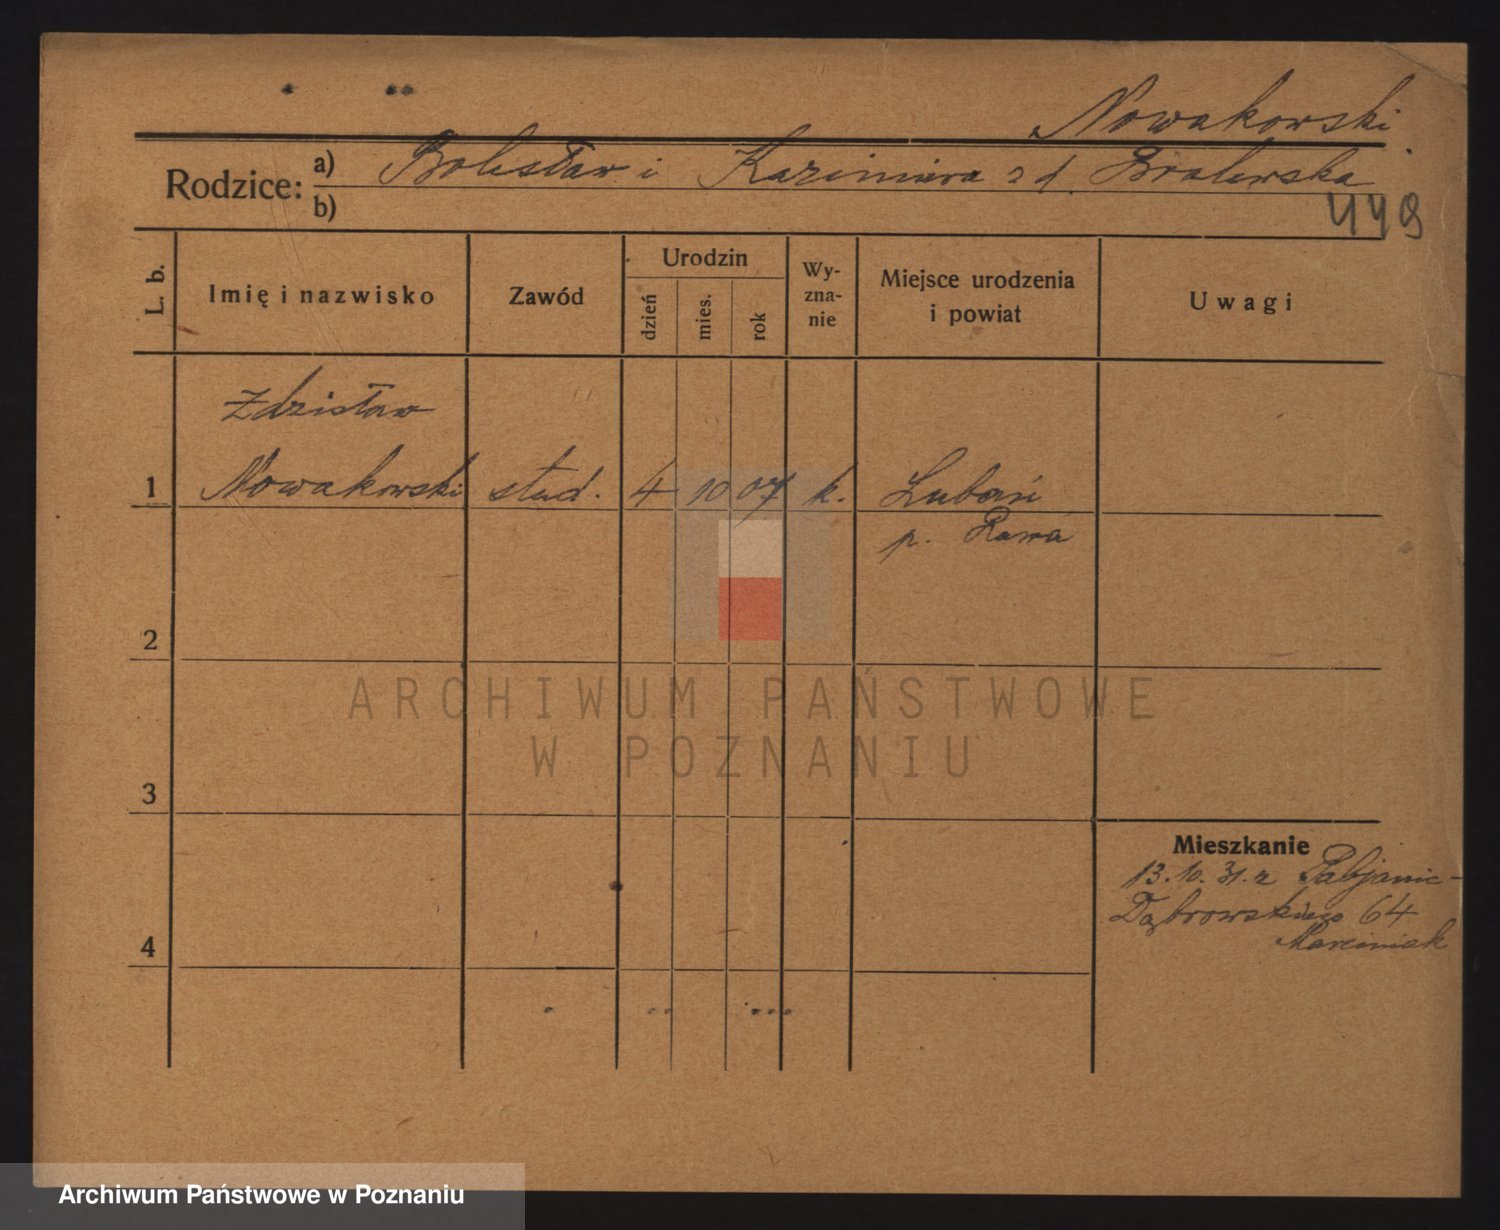 Nowakowski
Rodzice: a) Bolesław i Kazimiera z d. Bralewska
b)
449
L. b.
Imię i nazwisko
Zawód
Urodzin
dzień
mies.
rok
Wy-
zna-
nie
Miejsce urodzenia
i powiat
Uwagi
Zdzisław
1 Nowakowski stud. 4 10 07 k. Lubań
p. Rawa
2
ARCHIWUM PAŃSTWOWE
W POZNANIU
3
Mieszkanie
13.10.31. z Pabjanic -
Dąbrowskiego 64
Marciniak
4
Archiwum Państwowe w Poznaniu